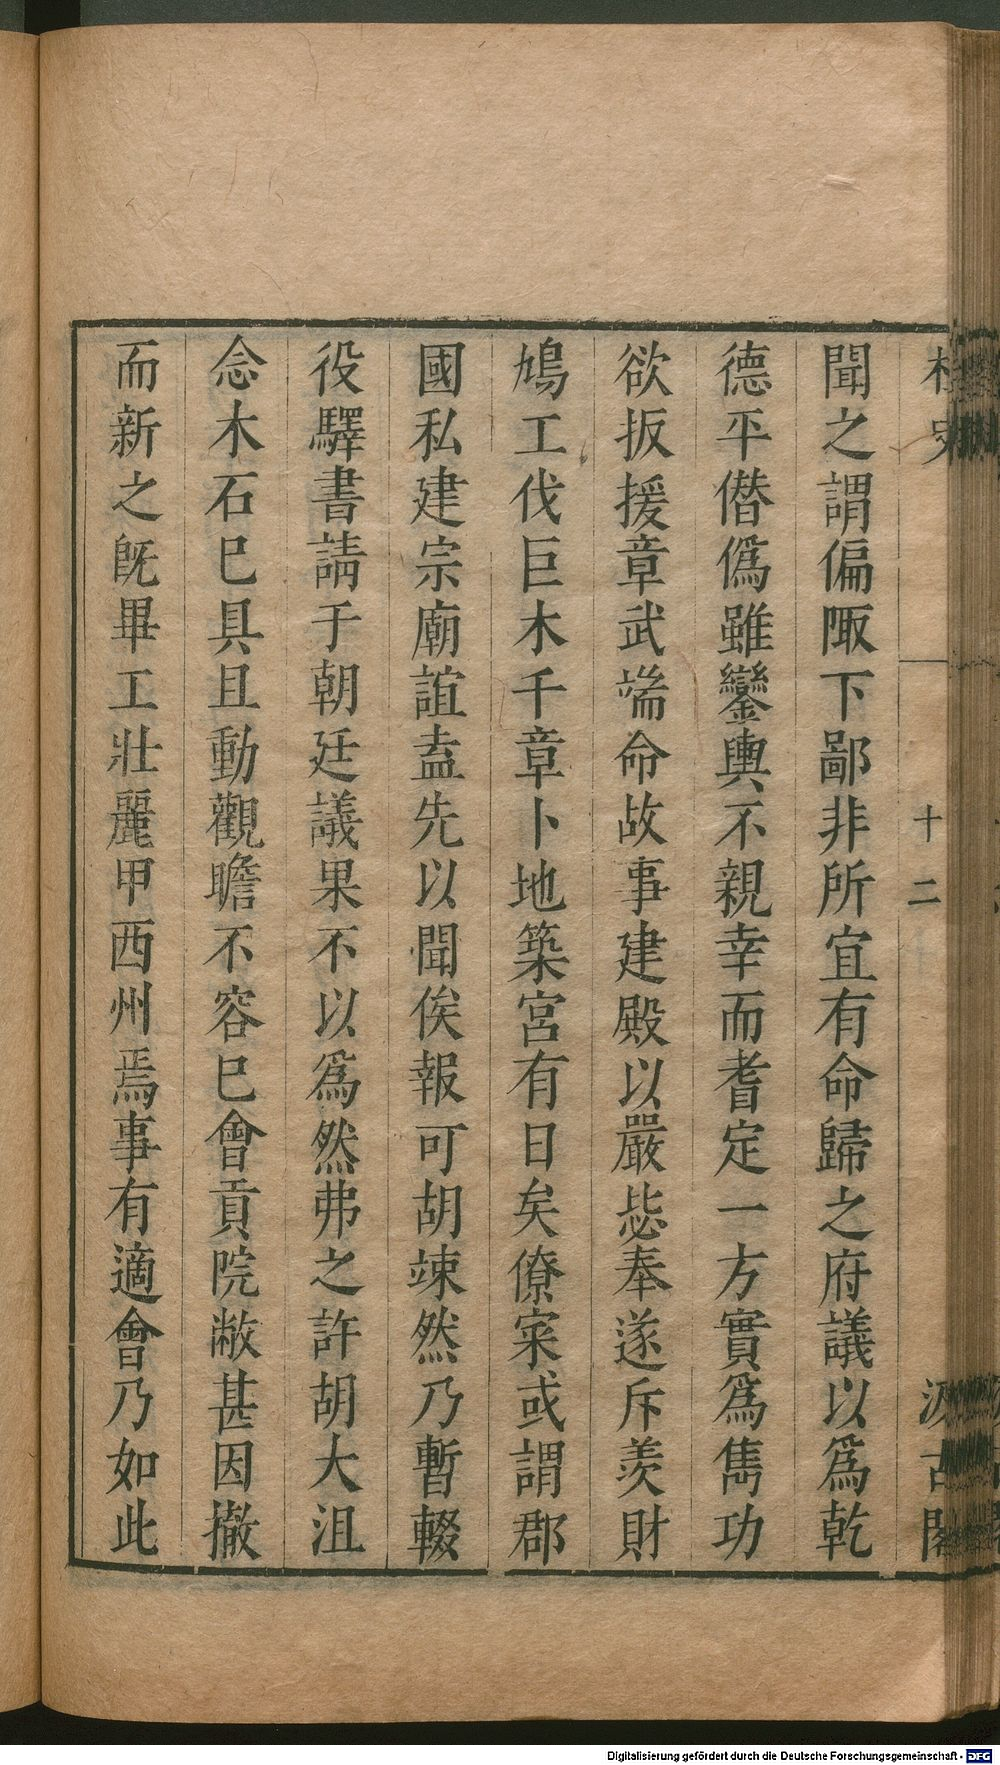 桯史
十二
汲古閣
聞之謂偏陬下鄙非所宜有命歸之府議以爲乾
德平僣僞雖鑾輿不親幸而耆定一方實爲雋功
欲扳援章武端命故事建殿以嚴毖奉遂斥羨財
鳩工伐巨木千章卜地築宮有日矣僚寀或謂郡
國私建宗廟誼盍先以聞俟報可胡竦然乃暫輟
役驛書請于朝廷議果不以爲然弗之許胡大沮
念木石巳具且動觀瞻不容巳會貢院敝甚因撤
而新之旣畢工壯麗甲西州焉事有適會乃如此
Digitalisierung gefördert durch die Deutsche Forschungsgemeinschaft - DFG